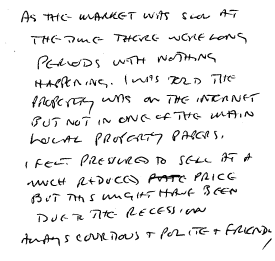 AS THE MARKET WAS SLOW AT
THE TIME THERE WERE LONG
PERIODS WITH NOTHING
HAPPENING. I WAS TOLD THE
PROPERTY WAS ON THE INTERNET
BUT NOT IN ONE OF THE MAIN
LOCAL PROPERTY PAPERS.
I FELT PRESURED TO SELL AT A
MUCH REDUCED PRICE
BUT THIS MIGHT HAVE BEEN
DUE TO THE RECESSION
ALWAYS COURTEOUS + POLITE + FRIENDLY